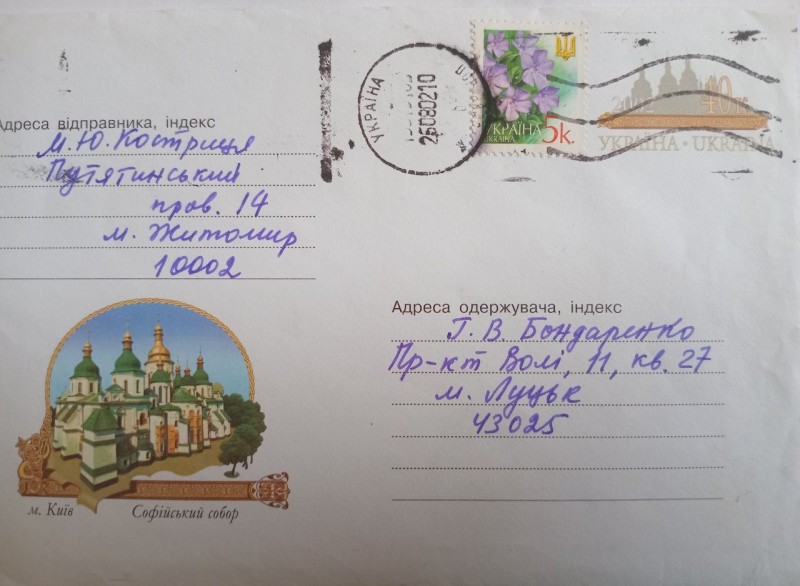 Адреса відправника, індекс
М.Ю. Костриця
Путятинський
пров. 14
м. Житомир
10002
УКРАЇНА
25080210
УКРАЇНА 5k.
UKRAINE
40
УКРАЇНА · UKRAINA
Адреса одержувача, індекс
Г. В. Бондаренко
Пр-кт Волі, 11, кв. 27
м. Луцьк
43025
м. Київ Софійський собор